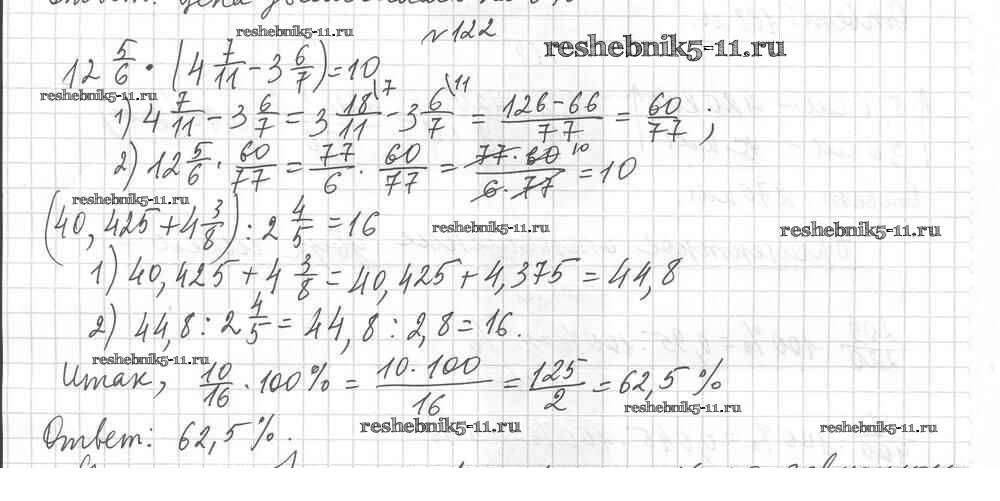 №122
reshebnik5-11.ru
reshebnik5-11.ru
12 5/6 · (4 7/11 - 3 6/7) = 10
reshebnik5-11.ru
1) 4 7/11 - 3 6/7 = 3 18/11 \7 - 3 6/7 \11 = 126-66/77 = 60/77 ;
2) 12 5/6 · 60/77 = 77/6 · 60/77 = 77·60/6·77 10 = 10
reshebnik5-11.ru
(40,425 + 4 3/8) : 2 4/5 = 16
reshebnik5-11.ru
reshebnik5-11.ru
1) 40,425 + 4 3/8 = 40,425 + 4,375 = 44,8
2) 44,8 : 2 4/5 = 44,8 : 2,8 = 16.
reshebnik5-11.ru
Итак, 10/16 · 100% = 10·100/16 = 125/2 = 62,5 %
reshebnik5-11.ru
reshebnik5-11.ru
reshebnik5-11.ru
Ответ: 62,5%.